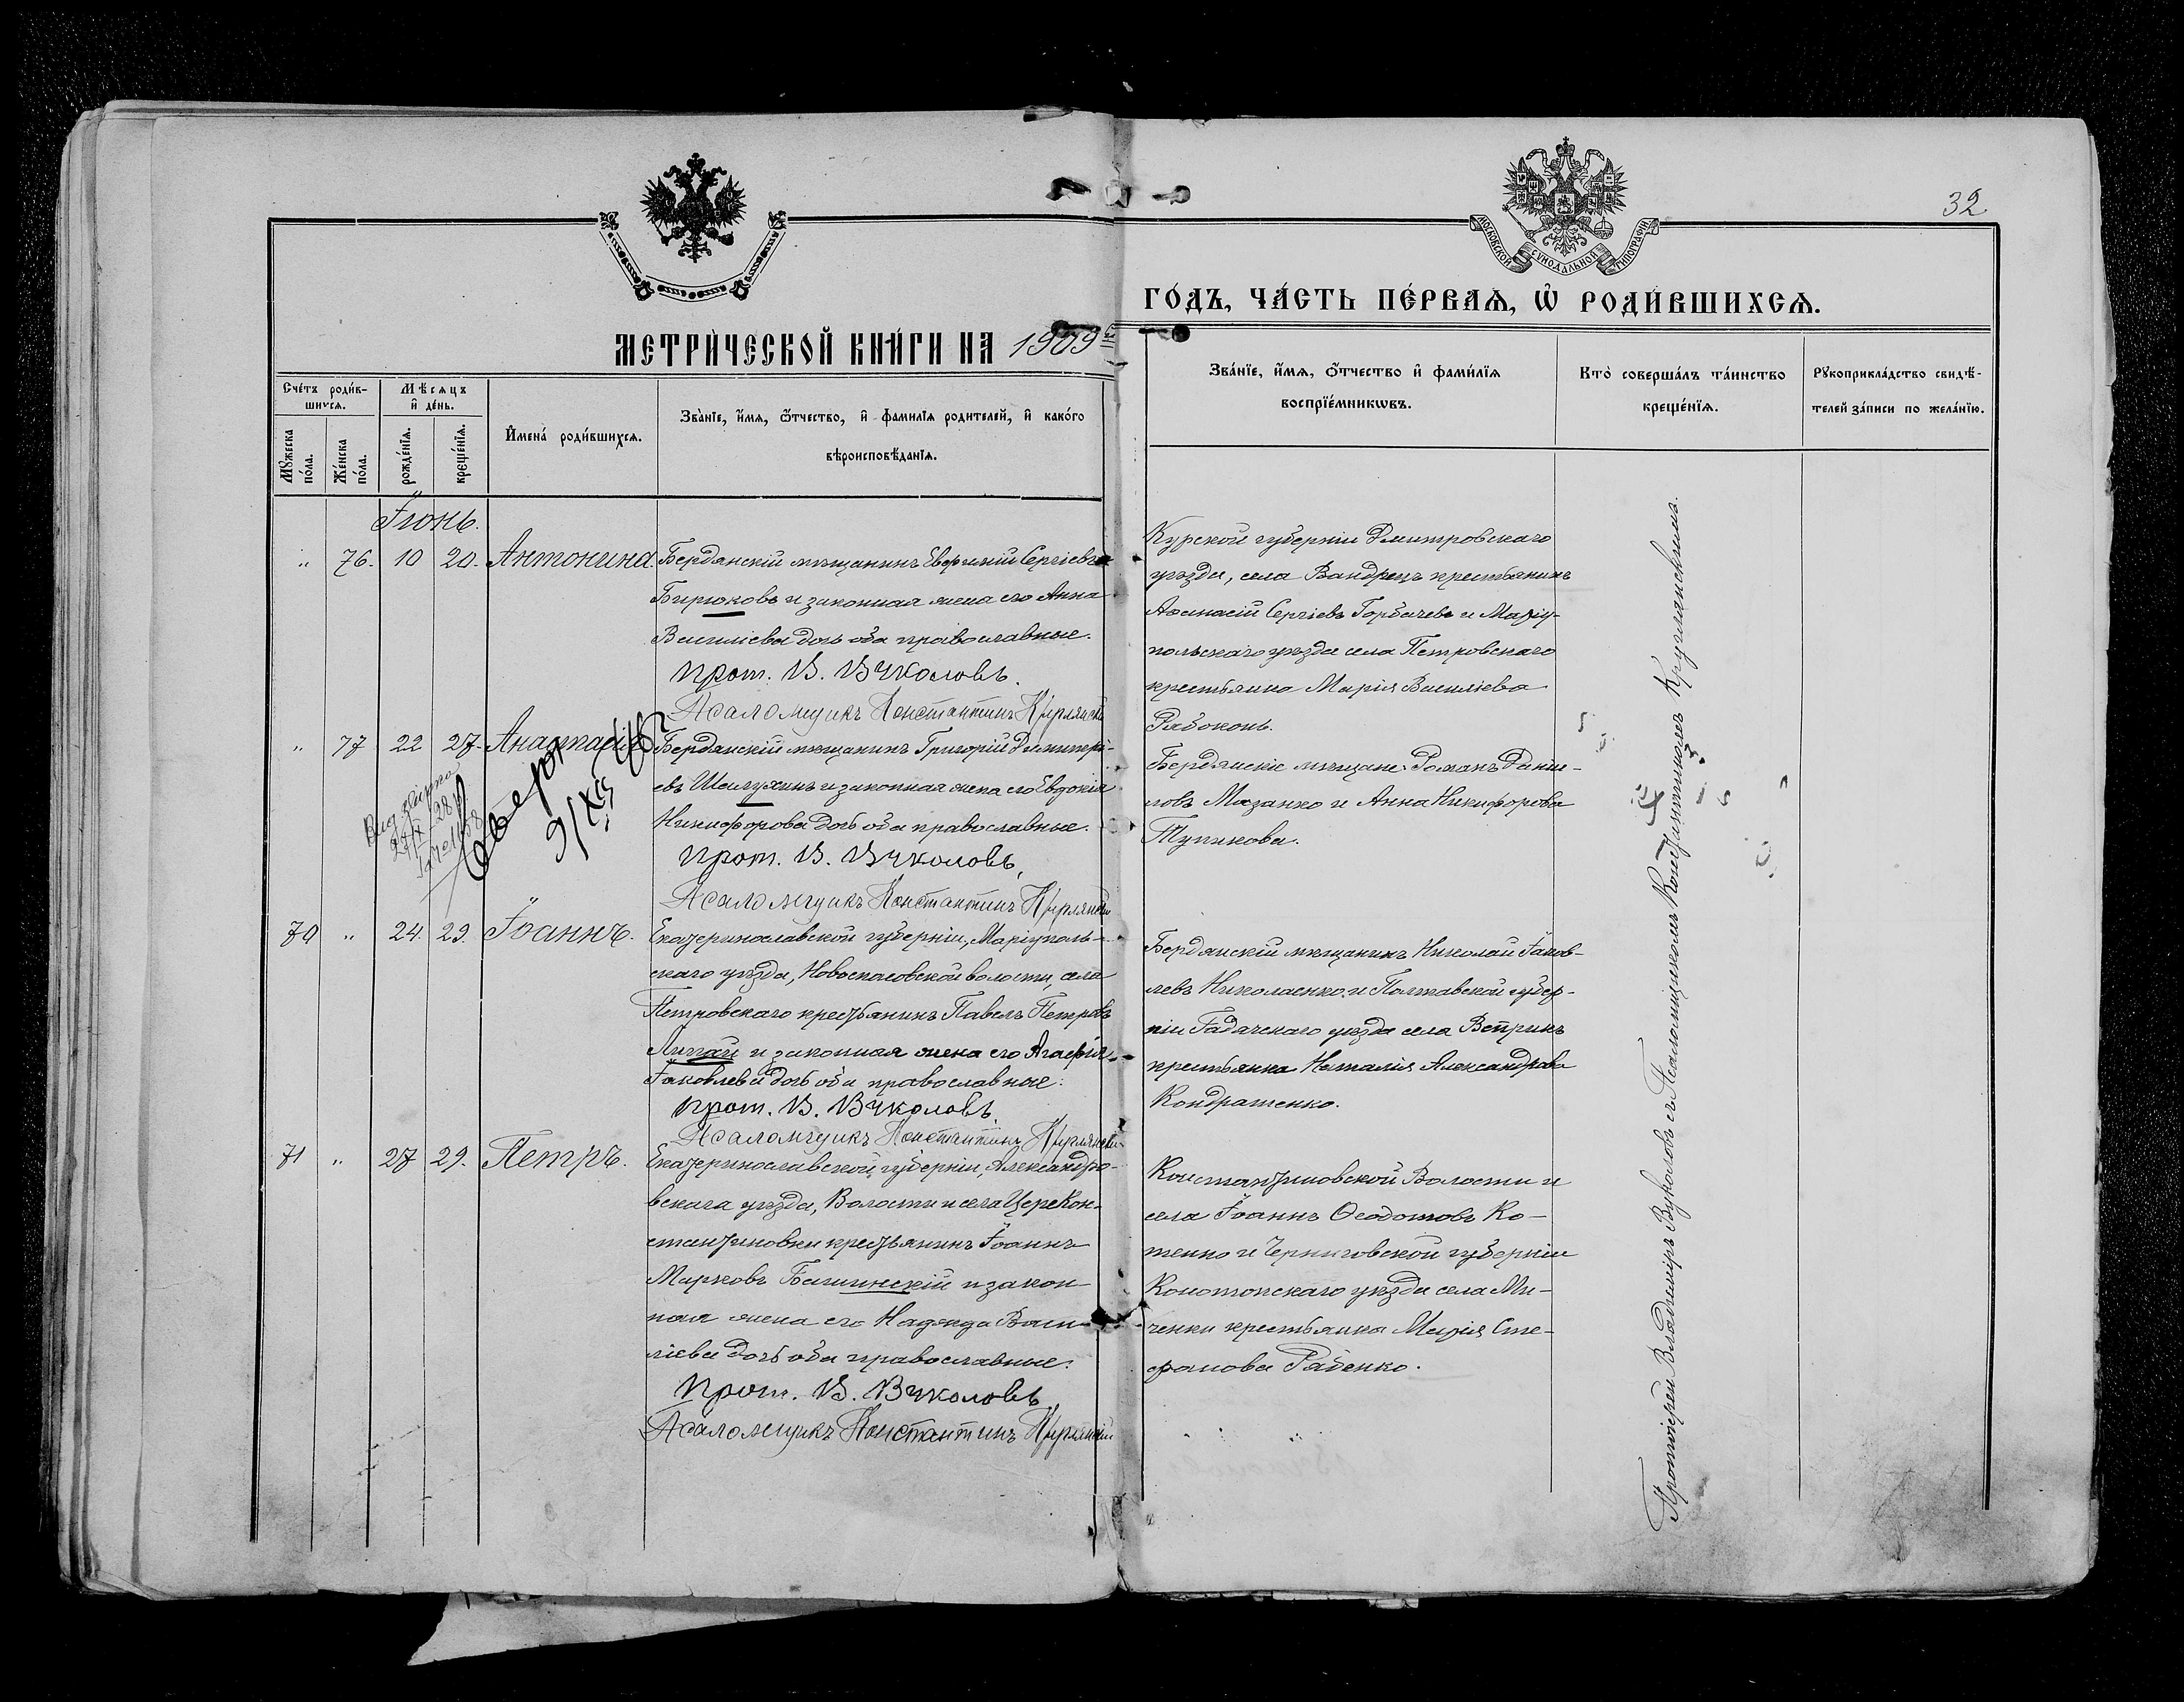 32
МОСКОВСКОЙ СѴНОДАЛЬНОЙ ТИПОГРАФІИ
МЕТРИ́ЧЕСКОЙ КНИ́ГИ НА 1909й
ГО́ДЪ, ЧА́СТЬ ПЕ́РВАѦ, Ѡ҆ РОДИ́ВШИХСѦ.
Сче́тъ роди́в-
шихсѧ.
Мꙋ́жеска
по́ла.
Же́нска
по́ла.
Мѣ́сѧцъ
и҆ де́нь.
рожде́нїѧ.
креще́нїѧ.
И҆мена̀ роди́вшихсѧ.
Зва́нїе, и҆́мѧ, ѻ҆́тчество, и҆ фамилїѧ родителей, и҆ како́го
вѣроисповѣ́данїѧ.
Зва́нїе, и҆́мѧ, ѻ҆́тчество и҆ фами́лїѧ
воспрїе́мникѡвъ.
Кто̀ соверша́лъ та́инство
креще́нїѧ.
Рꙋкоприкла́дство свидѣ́-
телей за́писи по жела́нїю.
Іюнь.
" 76. 10 20. Антонина.
Бердянскій мѣщанинъ Евфимій Сергіевъ
Бирюковъ и законная жена его Анна
Василіева дочь оба православные.
Прот. В. Вуколовъ.
Псаломщикъ Константинъ Круглянскій
Курской губерніи Дмитровскаго
уѣзда, села Вандрецъ крестьянинъ
Аѳанасій Сергіевъ Горбачевъ и Маріу-
польскаго уѣзда села Петровскаго
крестьянка Марія Василіева
Рябоконь.
" 77 22 27. Анастасія
28
Бердянскій мѣщанинъ Григорій Димитрі-
евъ Шелухинъ и законная жена его Евдокія
Никифорова дочь оба православные.
Прот. В. Вуколовъ,
Псаломщикъ Константинъ Круглянскій
Бердянскіе мѣщане Романъ Дани-
ловъ Мазанко и Анна Никифорова
Тупикова.
70 " 24. 29. Іоаннъ.
Екатеринославской губерніи, Маріуполь-
скаго уѣзда, Новоспасовской волости, села
Петровскаго крестьянинъ Павелъ Петровъ
Лигай и законная жена его Агафія
Іаковлева дочь оба православные.
Прот. В. Вуколовъ.
Псаломщикъ Константинъ Круглянскій
Бердянскій мѣщанинъ Николай Іаков-
левъ Николаенко и Полтавской губер-
ніи Гадячскаго уѣзда села Веприкъ
крестьянка Наталія Александрова
Кондратенко.
71 " 27 29. Петръ.
Екатеринославской губерніи, Александро-
вскаго уѣзда, Волости и села ЦареКон-
стантиновки крестьянинъ Іоаннъ
Марковъ Багинскій и закон
ная жена его Надежда Васи-
ліева дочь оба православные.
Прот. В. Вуколовъ
Псаломщикъ Константинъ Круглянскій
Константиновской Волости и
села Іоаннъ Ѳеодотовъ Ко-
тенко и Черниговской губерніи
Конотопскаго уѣзда села Ми-
ченки крестьянка Марія Сте-
фанова Рябенко.
Протоіерей Владиміръ Вуколовъ съ Псаломщикомъ Константиномъ Круглянскимъ.